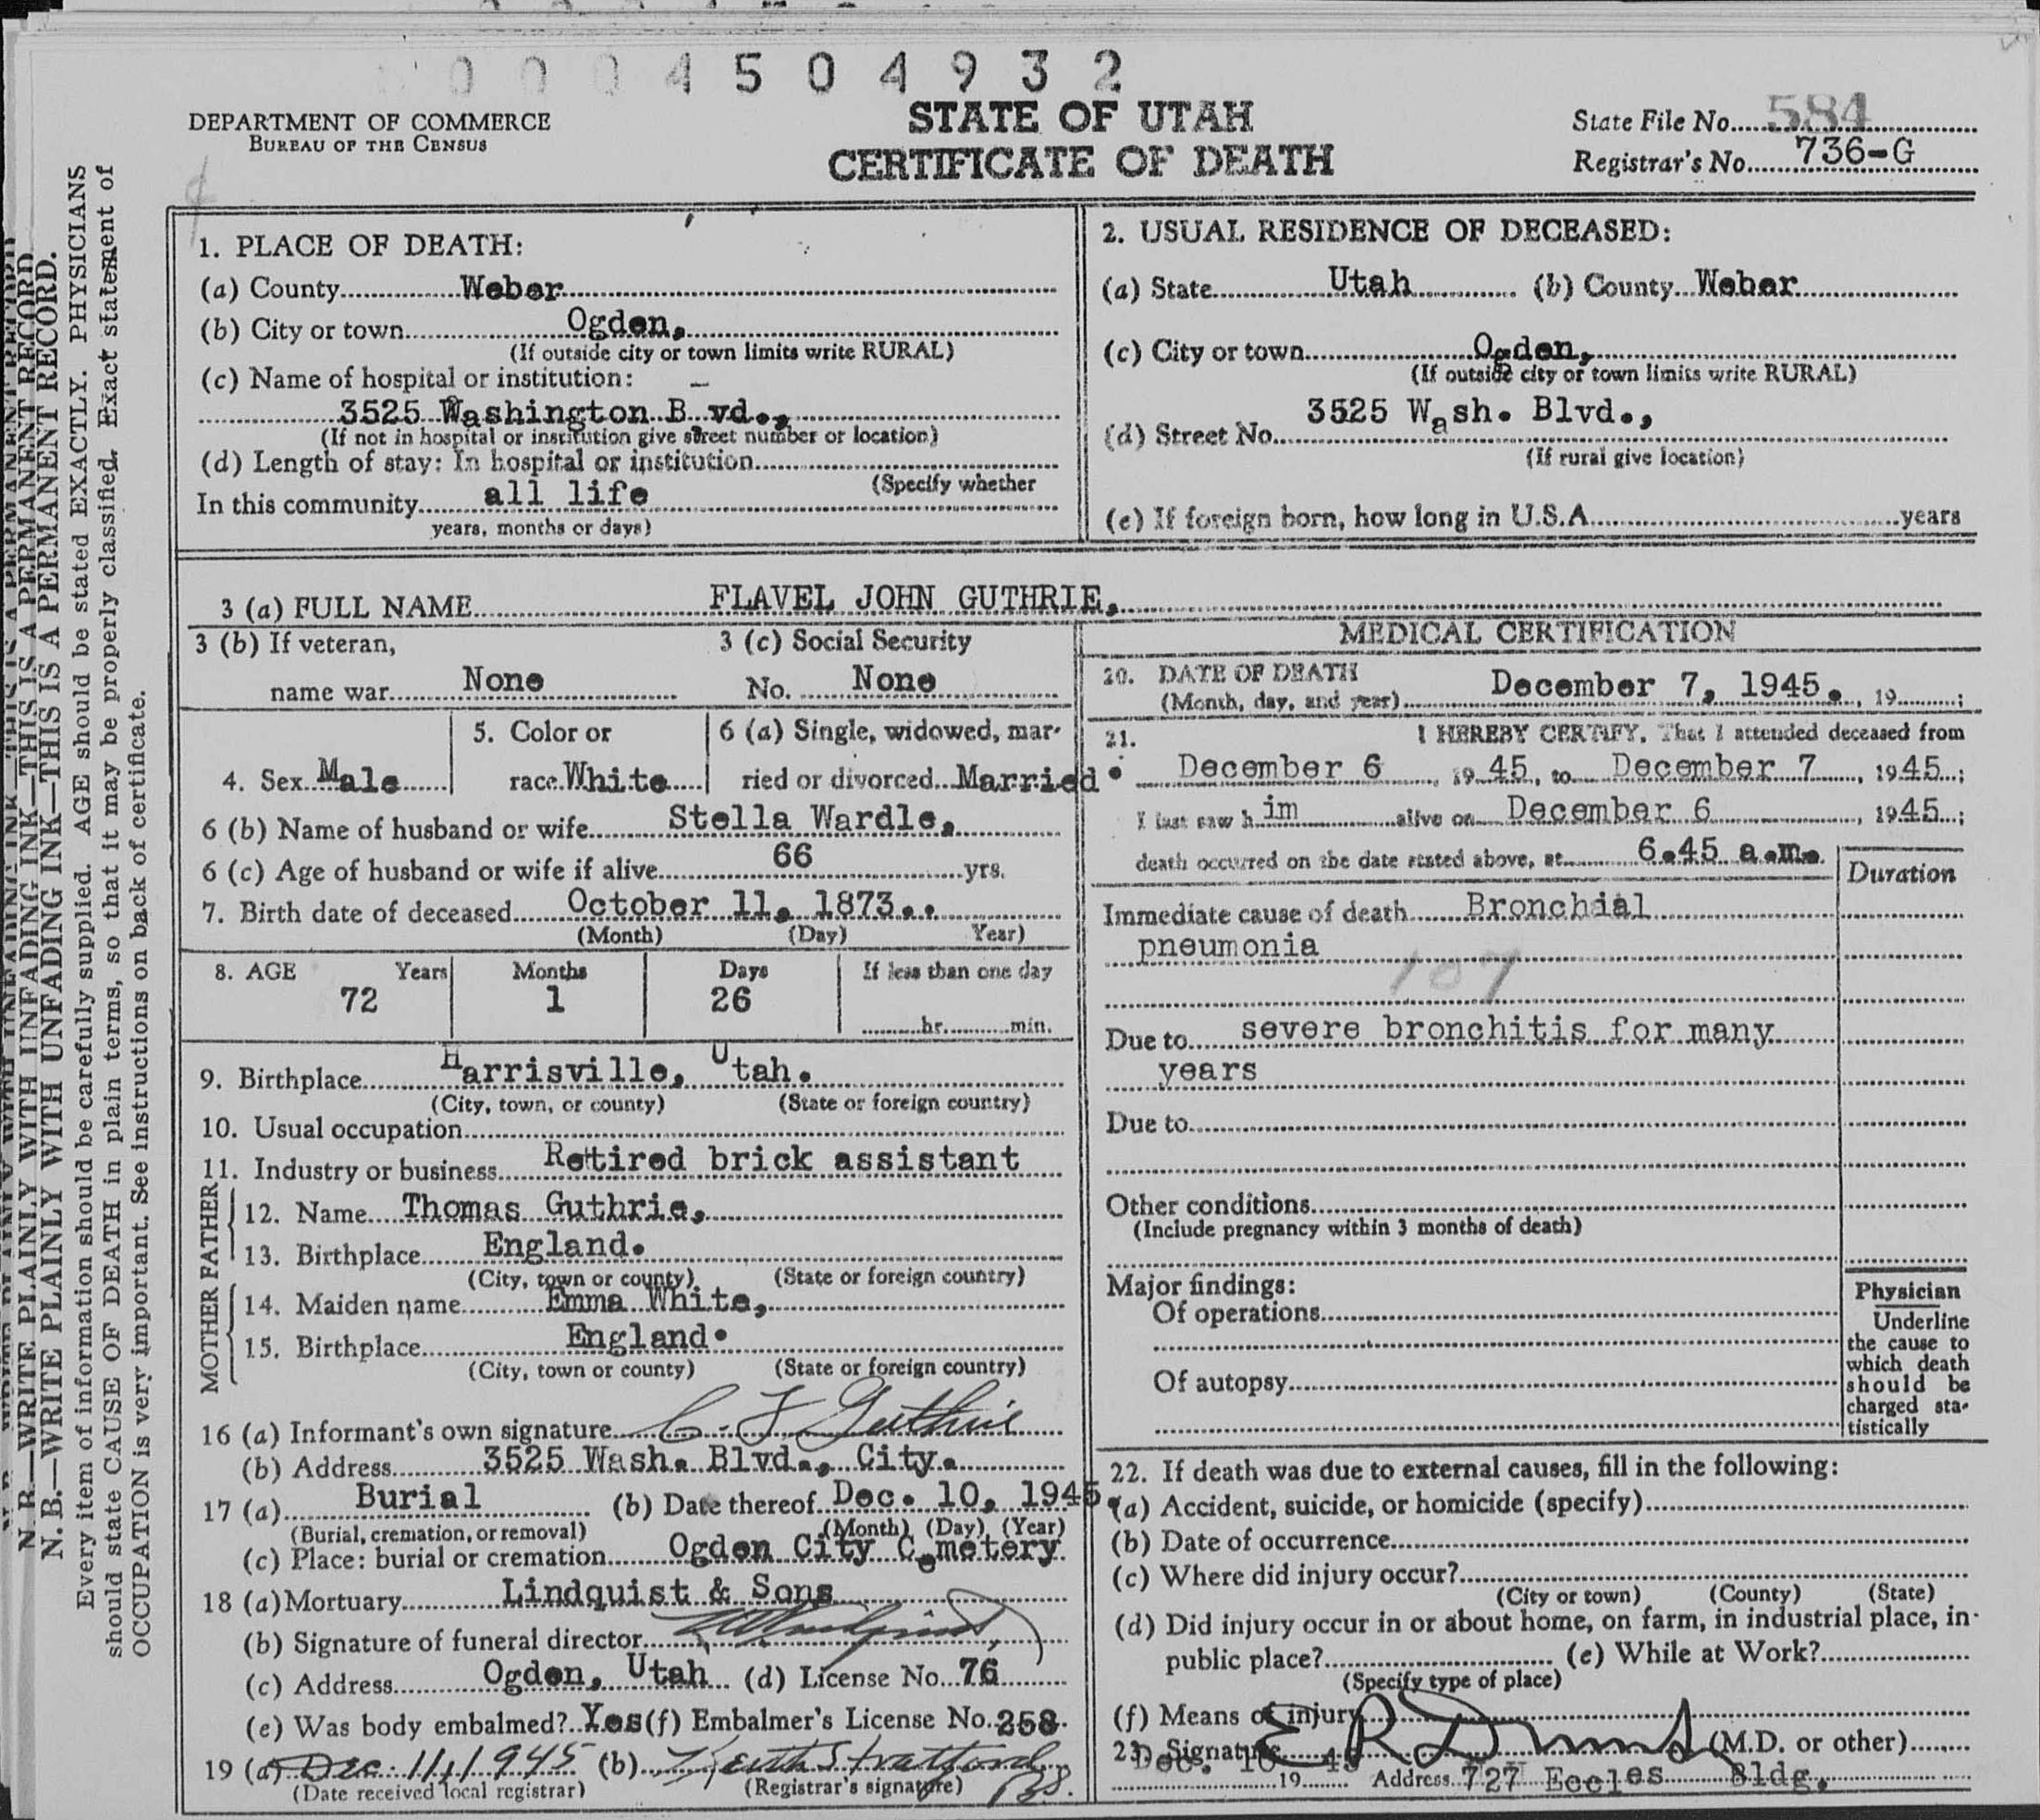 0 0 0 4 5 0 4 9 3 2
DEPARTMENT OF COMMERCE
BUREAU OF THE CENSUS
STATE OF UTAH
CERTIFICATE OF DEATH
State File No. 584
Registrar's No. 736-G
N. B.—WRITE PLAINLY WITH UNFADING INK—THIS IS A PERMANENT RECORD
N. B.—WRITE PLAINLY WITH UNFADING INK—THIS IS A PERMANENT RECORD.
Every item of information should be carefully supplied. AGE should be stated EXACTLY. PHYSICIANS
should state CAUSE OF DEATH in plain terms, so that it may be properly classified. Exact statement of
OCCUPATION is very important. See instructions on back of certificate.
1. PLACE OF DEATH:
(a) County Weber
(b) City or town Ogden,
(If outside city or town limits write RURAL)
(c) Name of hospital or institution: —
3525 Washington B vd.,
(If not in hospital or institution give street number or location)
(d) Length of stay: In hospital or institution
(Specify whether
In this community all life
years, months or days)
2. USUAL RESIDENCE OF DECEASED:
(a) State Utah (b) County Weber
(c) City or town Ogden,
(If outside city or town limits write RURAL)
3525 Wash. Blvd.,
(d) Street No.
(If rural give location)
(e) If foreign born, how long in U.S.A. years
3 (a) FULL NAME FLAVEL JOHN GUTHRIE,
3 (b) If veteran,
name war None
3 (c) Social Security
No. None
4. Sex Male
5. Color or
race White
6 (a) Single, widowed, mar-
ried or divorced Married.
6 (b) Name of husband or wife Stella Wardle,
6 (c) Age of husband or wife if alive 66 yrs.
7. Birth date of deceased October 11, 1873..
(Month) (Day) Year)
8. AGE Years Months Days If less than one day
72 1 26
hr. min.
9. Birthplace Harrisville, Utah.
(City, town, or county) (State or foreign country)
10. Usual occupation
11. Industry or business Retired brick assistant
FATHER
12. Name Thomas Guthrie,
13. Birthplace England.
(City, town or county) (State or foreign country)
MOTHER
14. Maiden name Emma White,
15. Birthplace England.
(City, town or county) (State or foreign country)
16 (a) Informant's own signature C. F. Guthrie
(b) Address 3525 Wash. Blvd., City.
17 (a) Burial (b) Date thereof Dec. 10, 1945
(Burial, cremation, or removal) (Month) (Day) (Year)
(c) Place: burial or cremation Ogden City Cemetery
18 (a) Mortuary Lindquist & Sons
(b) Signature of funeral director
(c) Address Ogden, Utah (d) License No. 76
(e) Was body embalmed? Yes (f) Embalmer's License No. 258
19 (a) Dec. 11, 1945 (b) Keith Stratford
(Date received local registrar) (Registrar's signature)
MEDICAL CERTIFICATION
20. DATE OF DEATH
(Month, day, and year) December 7, 1945., 19 ;
21. I HEREBY CERTIFY, That I attended deceased from
December 6, 1945, to December 7, 1945;
I last saw h im alive on December 6, 1945;
death occurred on the date stated above, at 6.45 a.m.
Duration
Immediate cause of death Bronchial
pneumonia
107
Due to severe bronchitis for many
years
Due to
Other conditions
(Include pregnancy within 3 months of death)
Major findings:
Of operations
Of autopsy
Physician
Underline
the cause to
which death
should be
charged sta-
tistically
22. If death was due to external causes, fill in the following:
(a) Accident, suicide, or homicide (specify)
(b) Date of occurrence
(c) Where did injury occur?
(City or town) (County) (State)
(d) Did injury occur in or about home, on farm, in industrial place, in
public place? (e) While at Work?
(Specify type of place)
(f) Means of injury
23. Signature (M.D. or other)
Dec. 10 19 45 Address 727 Eccles Bldg.